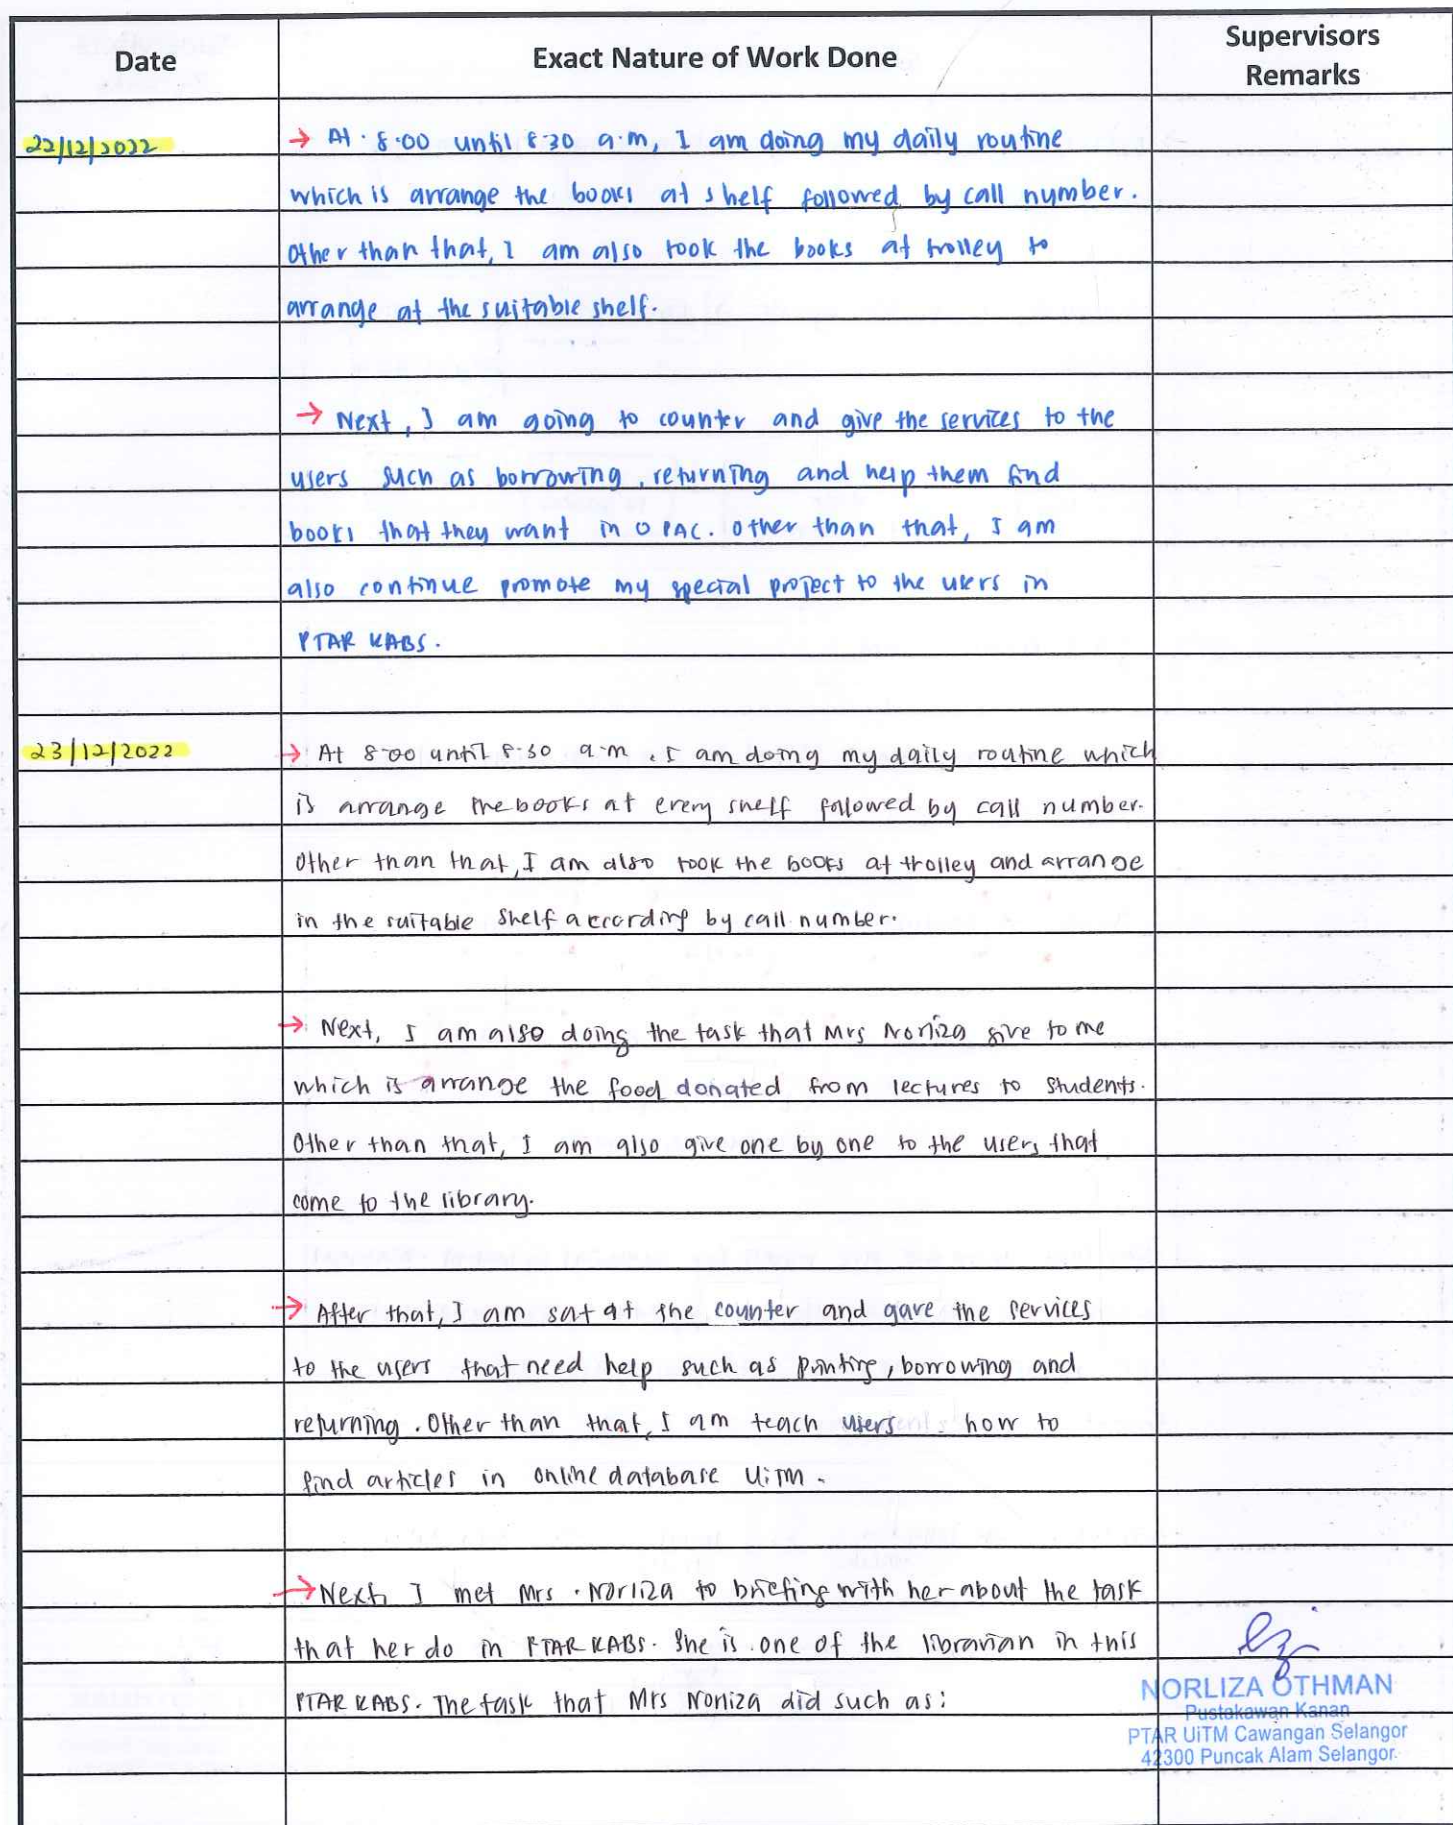 Date
Exact Nature of Work Done
Supervisors
Remarks
22/12/2022
→ At 8.00 until 8.30 a.m, I am doing my daily routine
which is arrange the books at shelf followed by call number.
Other than that, I am also took the books at trolley to
arrange at the suitable shelf.
→ Next, I am going to counter and give the services to the
users such as borrowing, returning and help them find
books that they want in OPAC. Other than that, I am
also continue promote my special project to the users in
PTAR KABS.
23/12/2022
→ At 8.00 until 8.30 a.m, I am doing my daily routine which
is arrange the books at every shelf followed by call number.
Other than that, I am also took the books at trolley and arrange
in the suitable shelf according by call number.
→ Next, I am also doing the task that Mrs Norliza give to me
which is arrange the food donated from lectures to students.
Other than that, I am also give one by one to the users that
come to the library.
→ After that, I am sat at the counter and gave the services
to the users that need help such as printing, borrowing and
returning. Other than that, I am teach users how to
find articles in online database UiTM.
→ Next, I met Mrs. Norliza to briefing with her about the task
that her do in PTAR KABS. She is one of the librarian in this
PTAR KABS. The task that Mrs Norliza did such as:
NORLIZA OTHMAN
Pustakawan Kanan
PTAR UiTM Cawangan Selangor
42300 Puncak Alam Selangor.